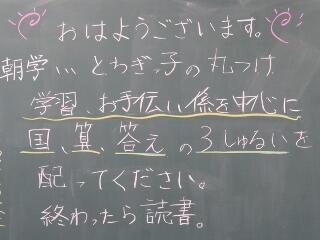 おはようございます。
朝学…とわぎっ子の丸つけ
学習、お手伝い係を中心に
国、算、答えの3しゅるいを
配ってください。
終わったら読書。